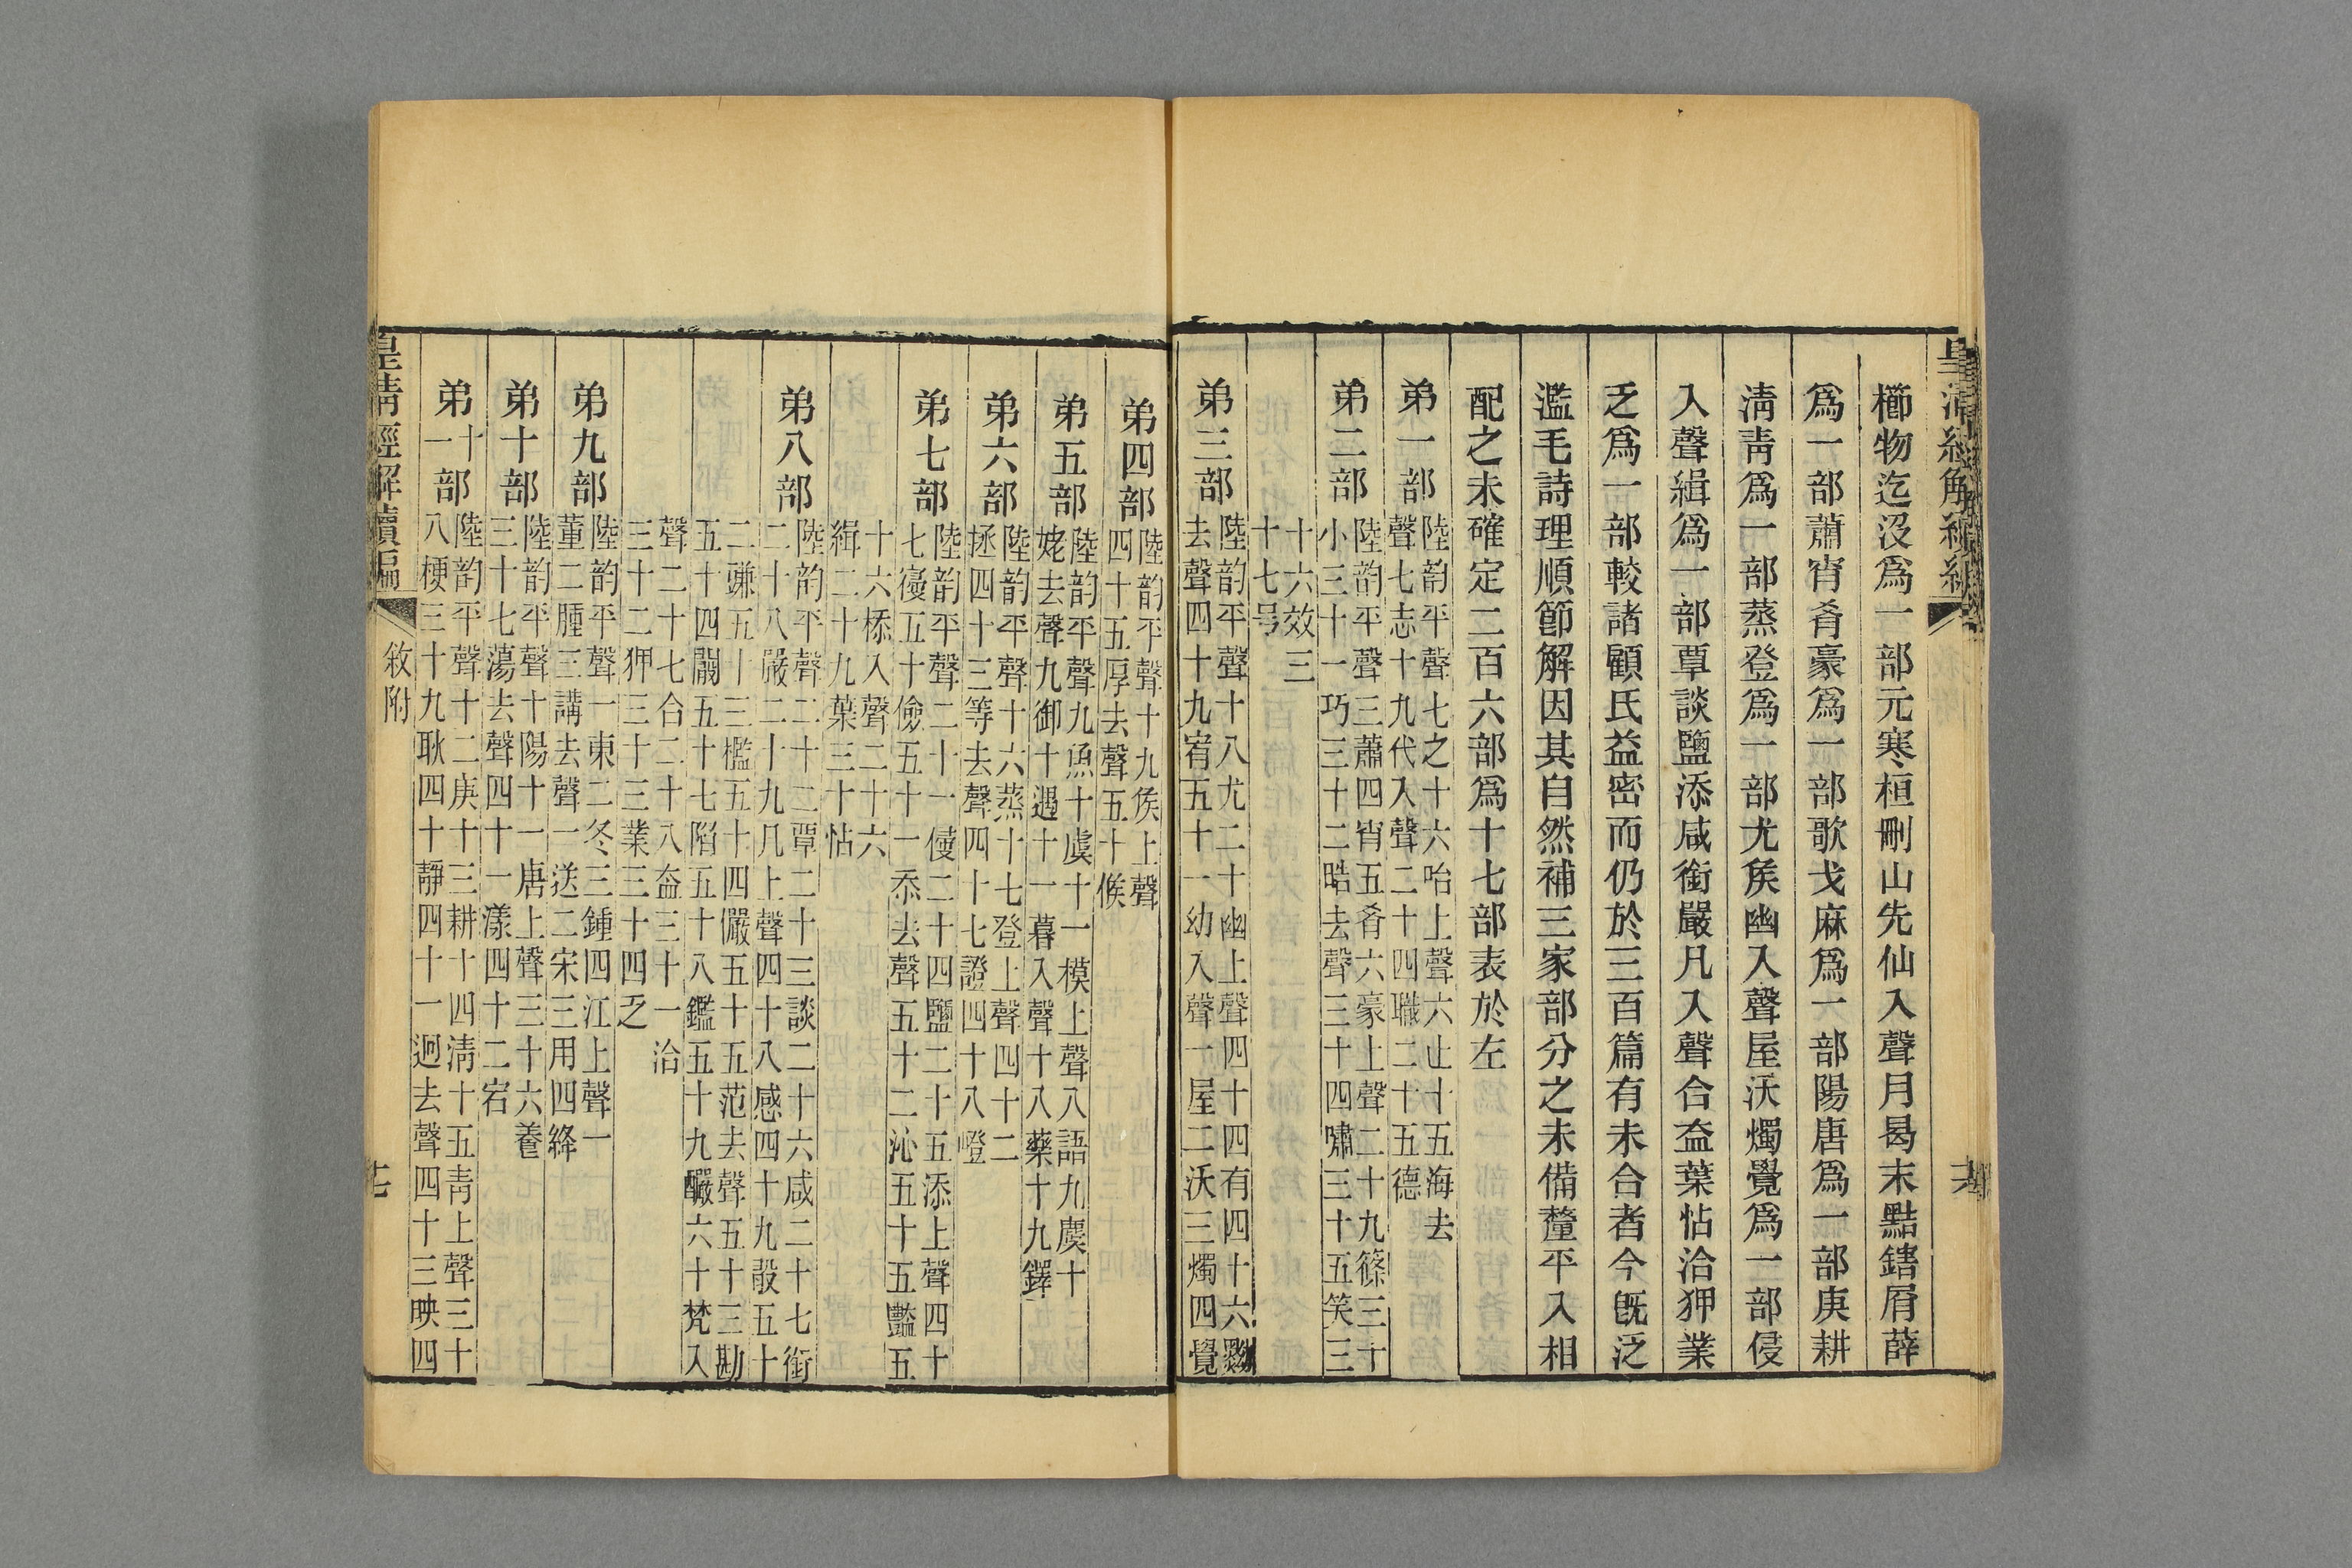 櫛物迄沒爲一部元寒桓刪山先仙入聲月曷末黠鎋屑薛
爲一部蕭宵肴豪爲一部歌戈麻爲一部陽唐爲一部庚耕
淸靑爲一部蒸登爲一部尤矦幽入聲屋沃燭覺爲一部侵
入聲緝爲一部覃談鹽添咸銜嚴凡入聲合盍葉怗洽狎業
乏爲一部較諸顧氏益密而仍於三百篇有未合者今旣泛
濫毛詩理順節解因其自然補三家部分之未備釐平入相
配之未確定二百六部爲十七部表於左
弟一部
陸韵平聲七之十六咍上聲六止十五海去
聲七志十九代入聲二十四職二十五德
弟二部
陸韵平聲三蕭四宵五肴六豪上聲二十九篠三十
小三十一巧三十二晧去聲三十四嘯三十五笑三
十六效三
十七号
弟三部
陸韵平聲十八尤二十幽上聲四十四有四十六黝
去聲四十九宥五十一幼入聲一屋二沃三燭四覺
弟四部
陸韵平聲十九矦上聲
四十五厚去聲五十候
弟五部
陸韵平聲九魚十虞十一模上聲八語九麌十
姥去聲九御十遇十一暮入聲十八藥十九鐸
弟六部
陸韵平聲十六蒸十七登上聲四十二
拯四十三等去聲四十七證四十八嶝
弟七部
陸韵平聲二十一侵二十四鹽二十五添上聲四十
七寑五十儉五十一忝去聲五十二沁五十五豔五
十六㮇入聲二十六
緝二十九葉三十怗
弟八部
陸韵平聲二十二覃二十三談二十六咸二十七銜
二十八嚴二十九凡上聲四十八感四十九敢五十
二豏五十三檻五十四儼五十五范去聲五十三勘
五十四闞五十七陷五十八鑑五十九釅六十梵入
聲二十七合二十八盍三十一洽
三十二狎三十三業三十四乏
弟九部
陸韵平聲一東二冬三鍾四江上聲一
董二腫三講去聲一送二宋三用四絳
弟十部
陸韵平聲十陽十一唐上聲三十六養
三十七蕩去聲四十一漾四十二宕
弟十一部
陸韵平聲十二庚十三耕十四淸十五靑上聲三十
八梗三十九耿四十靜四十一迥去聲四十三映四
皇淸經解續編
敘附